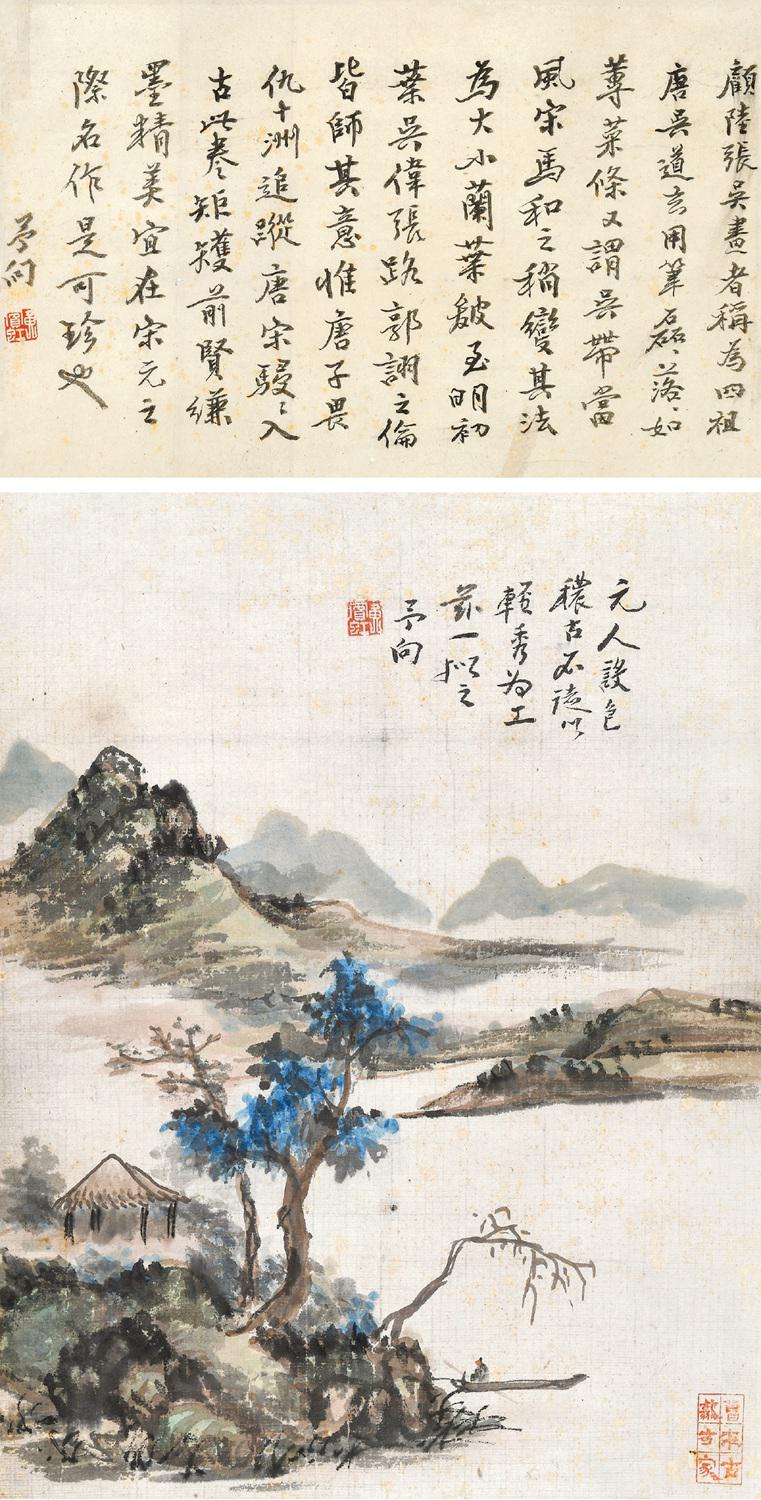 顧陸張吳畫者稱為四祖
唐吳道玄用筆磊〻落〻如
蓴菜條又謂吳帶當
風宋馬和之稍變其法
為大小蘭葉皴至明初
葉吳偉張路郭詡之倫
皆師其意惟唐子畏
仇十洲追蹤唐宋駸〻入
古此卷矩矱前賢縑
墨精美宜在宋元之
際名作是可珍也
予向
元人設色
穠古不徒以
輕秀為工
茲一擬之
予向
黃賓虹